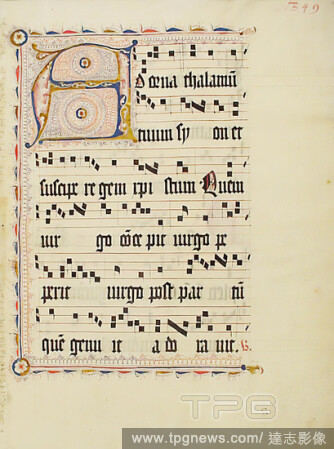 349
Adorna thalamū
tuum sy on et
suscipe re gem xpi stum Quem
uir go cōce pit uirgo pe
perit uirgo post par tū
quē genu it a do ra uit.
TPG
www.tpgnews.com/ 達志影像